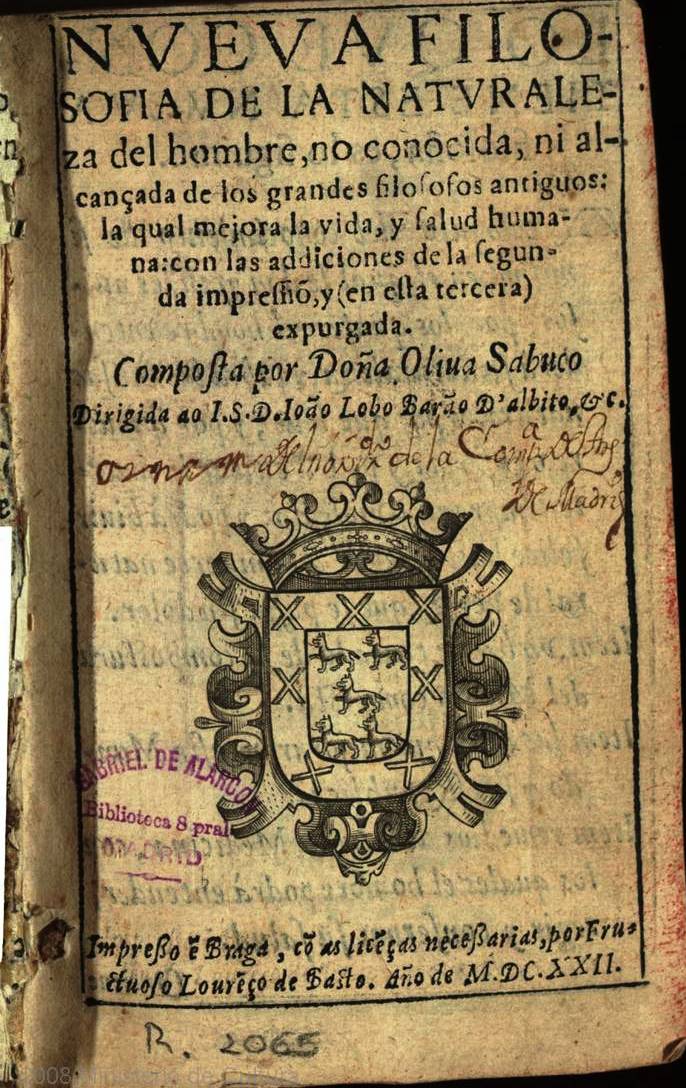 NVEVA FILO-
SOFIA DE LA NATVRALE-
za del hombre, no conocida, ni al-
cançada de los grandes filoſofos antiguos:
la qual mejora la vida, y ſalud huma-
na: con las addiciones de la ſegun-
da impreſſiõ, y (en eſta tercera)
expurgada.
Compoſta por Doña Oliua Sabuco
Dirigida ao I.S.D. Ioão Lobo Barão D'albito, &c.
de la
De Madrid
GABRIEL DE ALARCON
Biblioteca 8 pral
MADRID
Impreßo ẽ Braga, cõ as licẽças neceßarias, por Fru-
ctuoſo Lourẽço de Baſto. Año de M.DC.XXII.
R. 2065
2008 Ministerio de Cultura